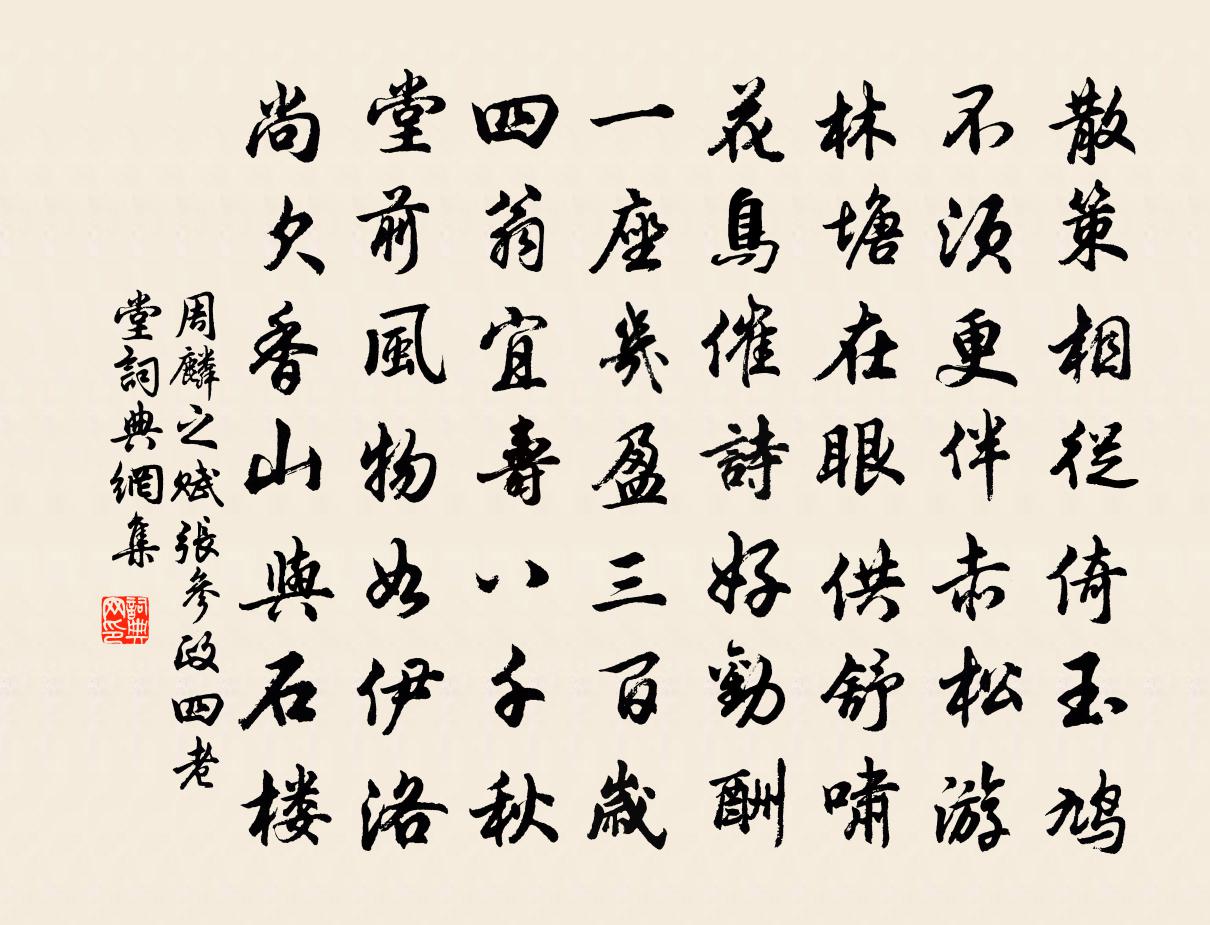 散策相從倚玉鳩
不須更伴赤松游
林塘在眼供舒嘯
花鳥催詩好勸酬
一座幾盈三百歲
四翁宜壽八千秋
堂前風物如伊洛
尚欠香山與石樓
周麟之賦張參政四老
堂詞典網集
詞典
网印